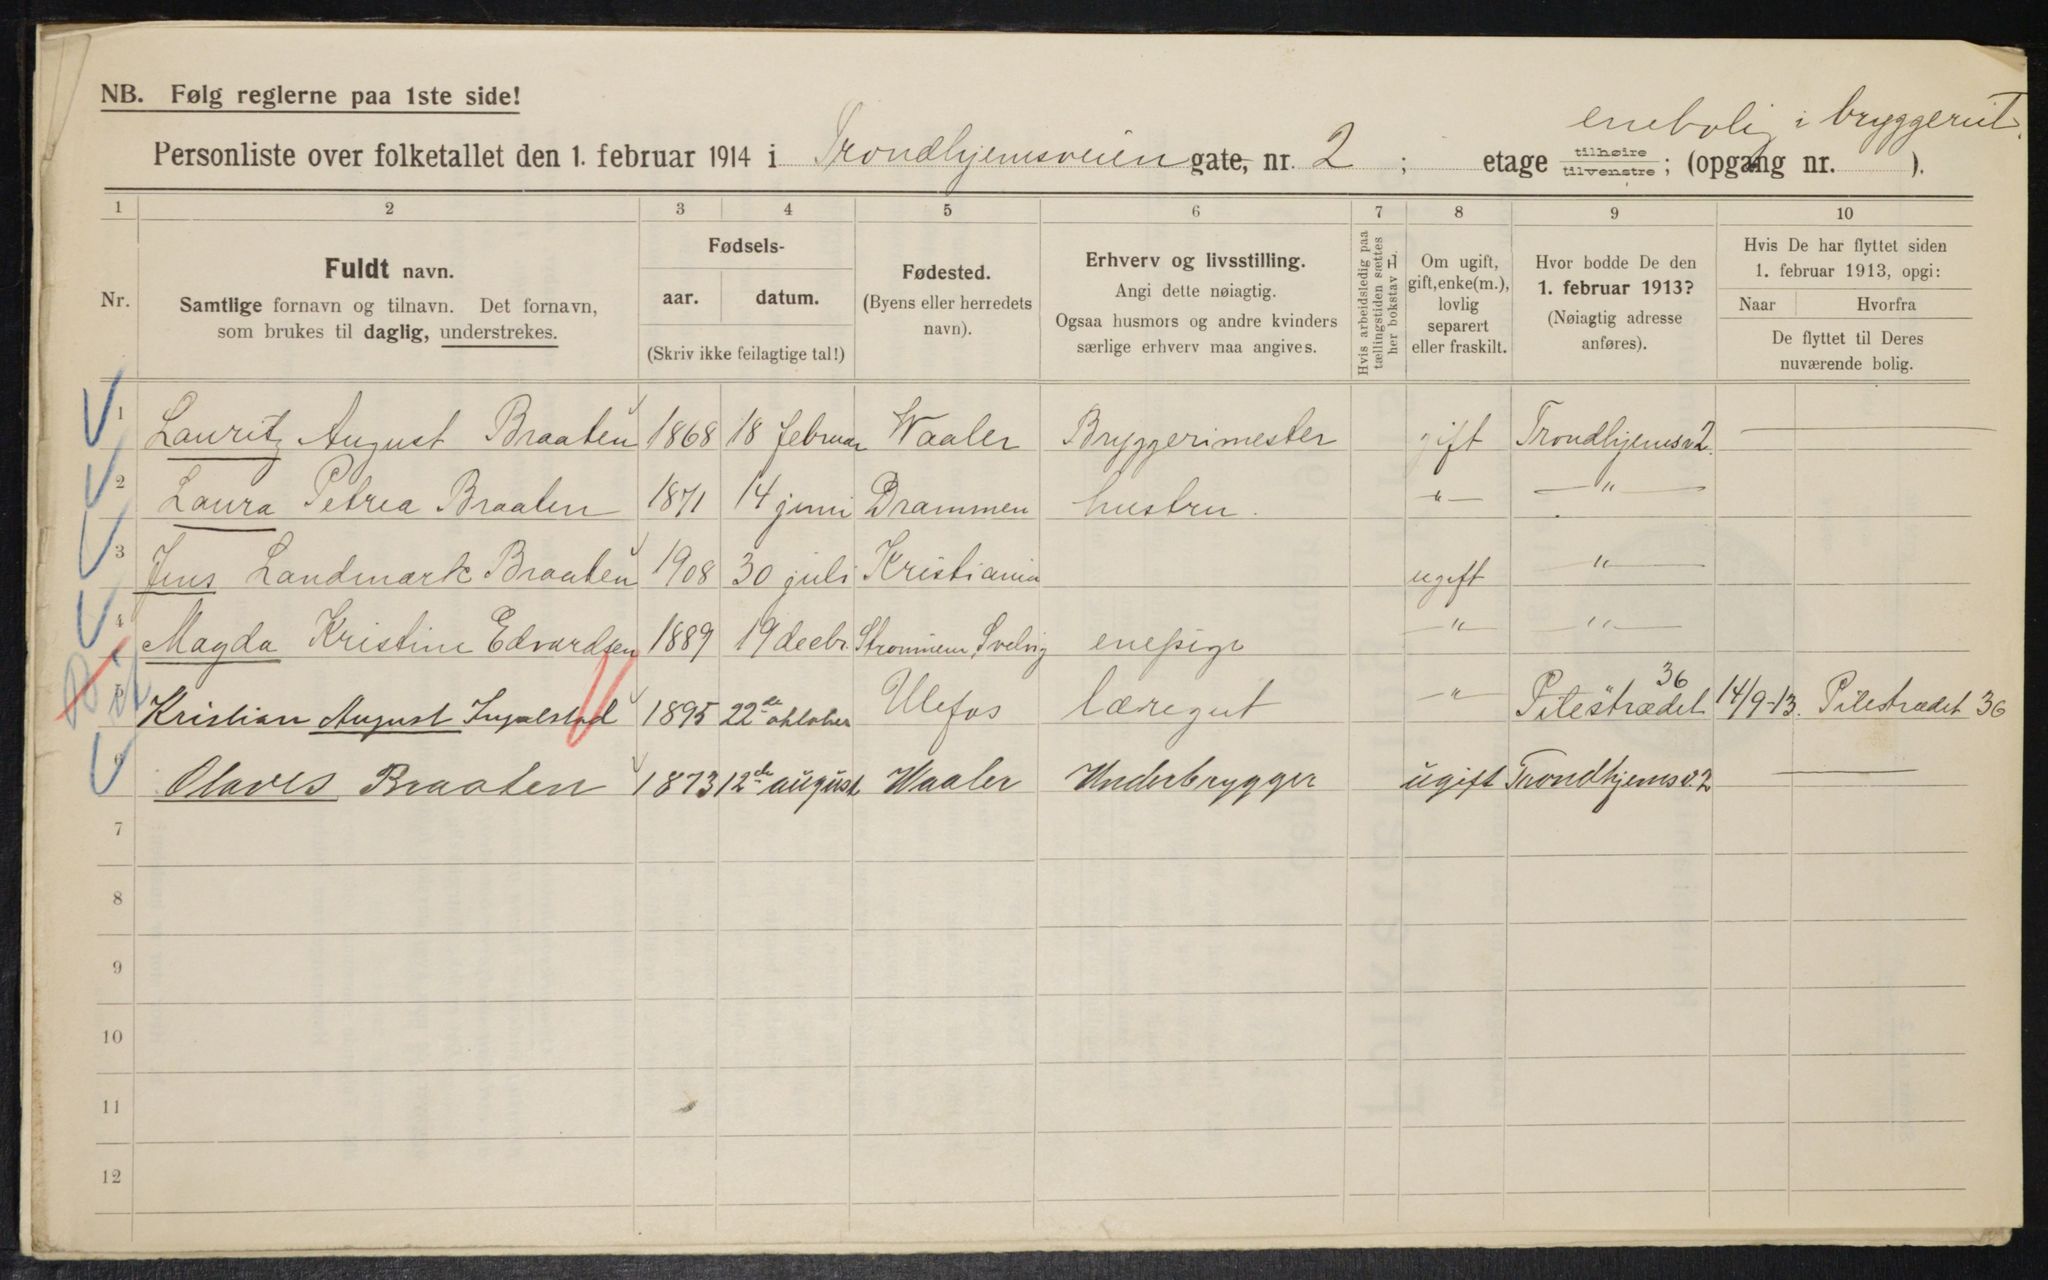 NB. Følg reglerne paa 1ste side!
enebolig i bryggeriet.
Personliste over folketallet den 1. februar 1914 i Trondhjemsveien gate, nr. 2 ; etage tilhøire tilvenstre ; (opgang nr. ).
1 2 3 4 5 6 7 8 9 10
Nr.
Fuldt navn.
Samtlige fornavn og tilnavn. Det fornavn,
som brukes til daglig, understrekes.
Fødsels-
aar. datum.
(Skriv ikke feilagtige tal!)
Fødested.
(Byens eller herredets
navn).
Erhverv og livsstilling.
Angi dette nøiagtig.
Ogsaa husmors og andre kvinders
særlige erhverv maa angives.
Hvis arbeidsledig paa
tællingstiden sættes
her bokstav L.
Om ugift,
gift, enke(m.),
lovlig
separert
eller fraskilt.
Hvor bodde De den
1. februar 1913?
(Nøiagtig adresse
anføres).
Hvis De har flyttet siden
1. februar 1913, opgi:
Naar Hvorfra
De flyttet til Deres
nuværende bolig.
1 Lauritz August Braaten 1868 18 februar Waaler Bryggerimester gift Trondhjemsv 2. —
2 Laura Petrea Braaten 1871 14 juni Drammen hustru. —"— —"—
3 Jens Landmark Braaten 1908 30 juli Kristiania ugift —"—
4 Magda Kristine Edvardsen 1889 19 decbr. Strømmen, Svelvig enepige —"— —"—
5 Kristian August 1895 22de oktober Ulefos læregut —"— Pilestrædet 36 14/9-13. Pilestrædet 36
6 Olaves Braaten 1873 12te august Waaler Underbrygger ugift Trondhjemsv. 2 —
7
8
9
10
11
12